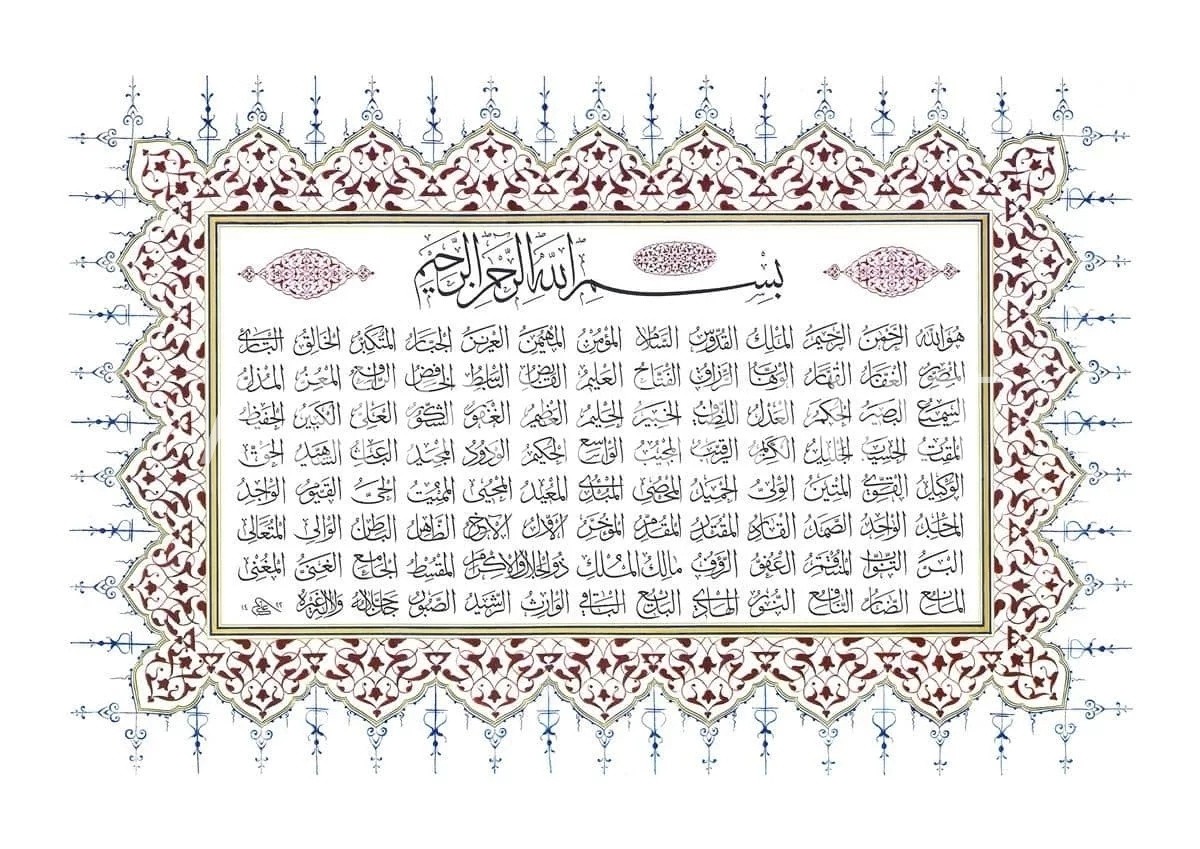 بسم الله الرحمن الرحيم
هو الله الرحمن الرحيم الملك القدوس السلام المؤمن المهيمن العزيز الجبار المتكبر الخالق البارئ
المصور الغفار القهار الوهاب الرزاق الفتاح العليم القابض الباسط الخافض الرافع المعز المذل
السميع البصير الحكم العدل اللطيف الخبير الحليم العظيم الغفور الشكور العلي الكبير الحفيظ
المقيت الحسيب الجليل الكريم الرقيب المجيب الواسع الحكيم الودود المجيد الباعث الشهيد الحق
الوكيل القوي المتين الولي الحميد المحصي المبدئ المعيد المحيي المميت الحي القيوم الواجد
الماجد الواحد الصمد القادر المقتدر المقدم المؤخر الأول الآخر الظاهر الباطن الوالي المتعالي
البر التواب المنتقم العفو الرؤف مالك الملك ذو الجلال والإكرام المقسط الجامع الغني المغني
المانع الضار النافع النور الهادي البديع الباقي الوارث الرشيد الصبور جل جلاله ولا إله غيره